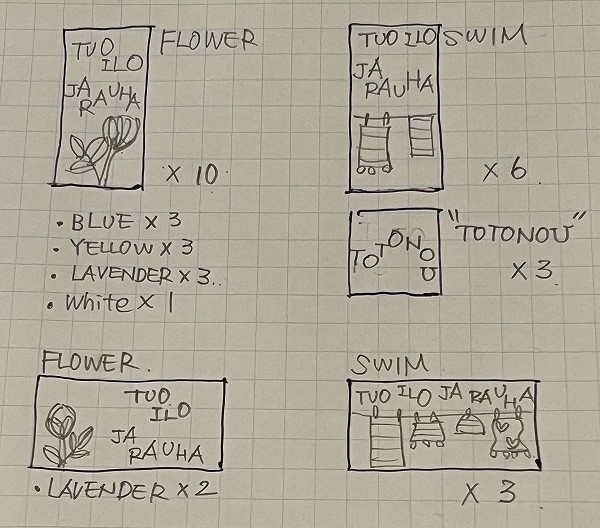 TUO
ILO
JA
RAUHA
FLOWER
× 10
• BLUE × 3
• YELLOW × 3
• LAVENDER × 3.
• White × 1
TUO ILO
JA
RAUHA
SWIM
× 6.
TOTONOU
"TOTONOU"
× 3.
FLOWER.
TUO
ILO
JA
RAUHA
• LAVENDER × 2
SWIM
TUO ILO JA RAUHA
× 3